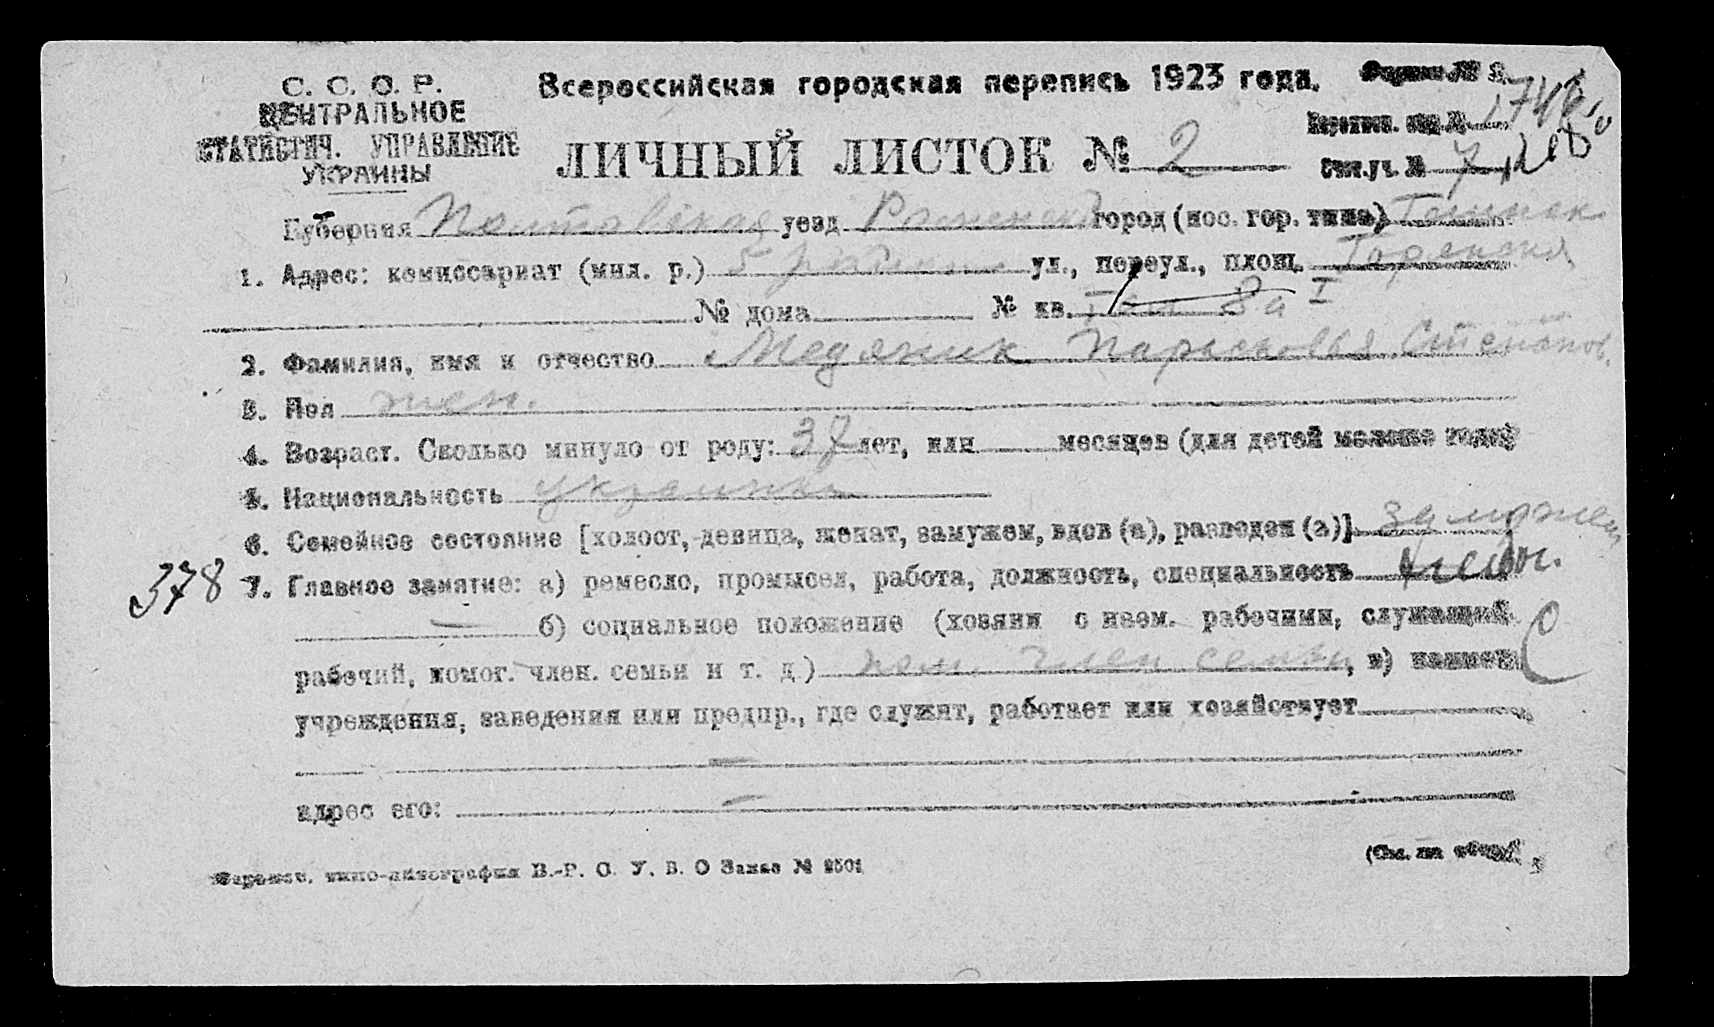 С. С. С. Р.
ЦЕНТРАЛЬНОЕ
СТАТИСТИЧ. УПРАВЛЕНИЕ
УКРАИНЫ
Всероссийская городская перепись 1923 года.
ЛИЧНЫЙ ЛИСТОК № 2
Переписн. отд. №
Счит. уч. № 7
Губерния Полтавская уезд город (пос. гор. типа)
1. Адрес: комиссариат (мил. р.) 5 ул., переул., площ.
№ дома № кв. 8а I
2. Фамилия, имя и отчество Медяник Парасковья Степанов.
3. Пол жен.
4. Возраст. Сколько минуло от роду: 37 лет, или месяцев (для детей моложе года)
5. Национальность украинка
6. Семейное состояние [холост, девица, женат, замужем, вдов (а), разведен (а)] замужем
378 7. Главное занятие: а) ремесло, промысел, работа, должность, специальность
— б) социальное положение (хозяин с наем. рабочими, служащий
рабочий, помог. член. семьи и т. д.) пом. член семьи, в) наимен.
учреждения, заведения или предпр., где служит, работает или хозяйствует
—
адрес его: —
типо-литография В.-Р. С. У. В. О Заказ № 2501
(См. на обор.)